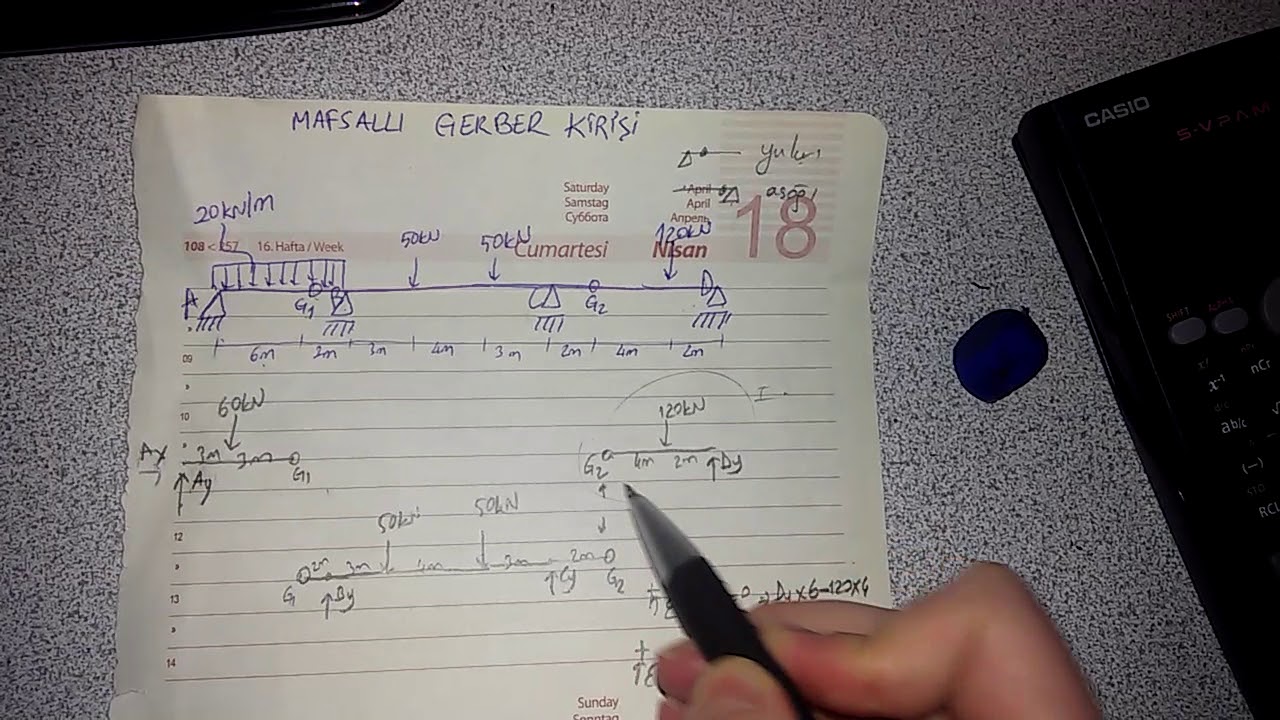 CASIO
S-VPAM
MAFSALLI GERBER KİRİŞİ
yukarı
Saturday
Samstag
Суббота
April
April
Апрель
aşağı
18
108 < 257 16. Hafta / Week
Cumartesi
Nisan
20kN/m
50kN
50kN
120kN
A
G1
B
C
G2
D
6m 2m 3m 4m 3m 2m 4m 2m
09
10
60kN
120kN
I.
Ax
3m 3m
G1
Ay
G2
4m 2m
Dy
12
50kN
50kN
2m 3m 4m 3m 2m
G
By
Cy
G2
13
=> Dy x 6 - 120 x 4
14
Sunday
Sonntag
SHIFT
ALPHA
x!
x⁻¹
nCr
ab/c
(—)
STO
RCL